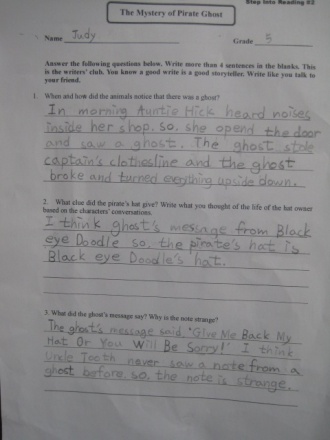 Step Into Reading #3
The Mystery of Pirate Ghost
Name Judy Grade 5
Answer the following questions below. Write more than 4 sentences in the blanks. This
is the writers' club. You know a good write is a good storyteller. Write like you talk to
your friend.
1. When and how did the animals notice that there was a ghost?
In morning Auntie Hick heard noises
inside her shop, so, she opend the door
and saw a ghost. The ghost stole
captain's clothesline and the ghost
broke and turned everything upside down.
2. What clue did the pirate's hat give? Write what you thought of the life of the hat owner
based on the characters' conversations.
I think ghost's message from Black
eye Doodle so, the pirate's hat is
Black eye Doodle's hat.
3. What did the ghost's message say? Why is the note strange?
The ghost's message said, "Give Me Back My
Hat Or You Will Be Sorry!" I think
Uncle Tooth never saw a note from a
ghost before so, the note is strange.